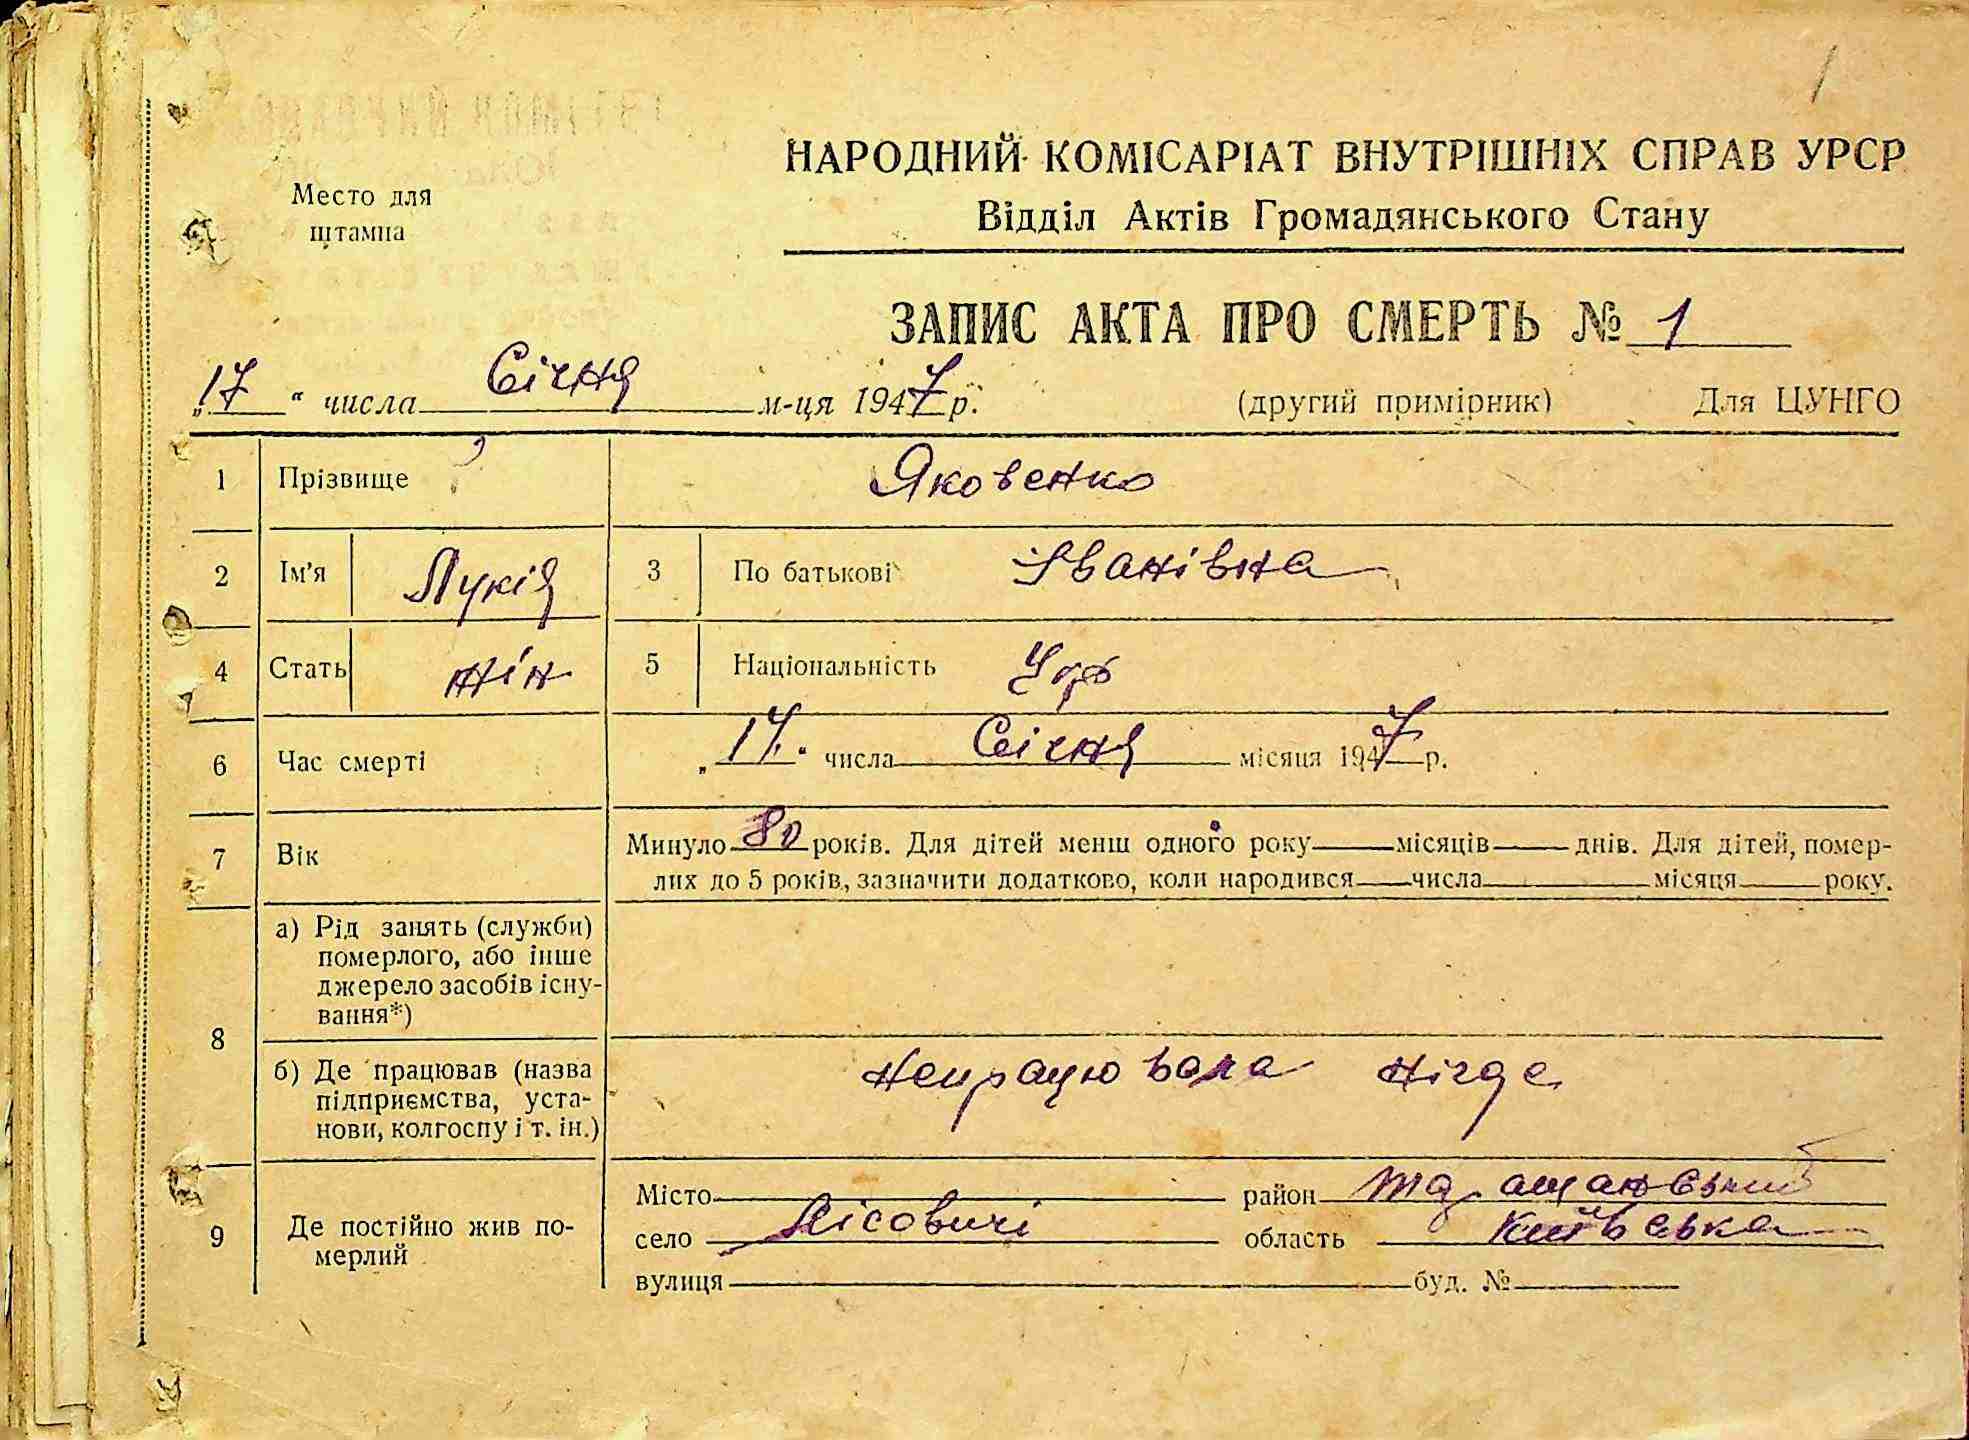 1
НАРОДНИЙ КОМІСАРІАТ ВНУТРІШНІХ СПРАВ УРСР
Відділ Актів Громадянського Стану
Место для
штампа
ЗАПИС АКТА ПРО СМЕРТЬ № 1
„17“ числа Січня м-ця 1947 р.
(другий примірник) Для ЦУНГО
1 Прізвище Яковенко
2 Ім'я Лукія 3 По батькові Іванівна
4 Стать жін 5 Національність Укр
6 Час смерті „17“ числа Січня місяця 1947 р.
7 Вік Минуло 80 років. Для дітей менш одного року місяців днів. Для дітей, помер-
лих до 5 років, зазначити додатково, коли народився числа місяця року.
8 а) Рід занять (служби)
померлого, або інше
джерело засобів існу-
вання*)
б) Де працював (назва
підприємства, уста-
нови, колгоспу і т. ін.)
Непрацювала нігде
9 Де постійно жив по-
мерлий
Місто район Таращанський
село Лісовичі область Київська
вулиця буд. №